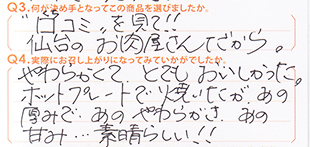 Q3.何が決め手となってこの商品を選びましたか。
"口コミ"を見て!!
仙台のお肉屋さんだから。
Q4.実際にお召し上がりになってみていかがでしたか。
やわらかくて、とてもおいしかった。
ホットプレートで焼いたが、あの
厚みで、あのやわらかさ、あの
甘み…素晴らしい!!